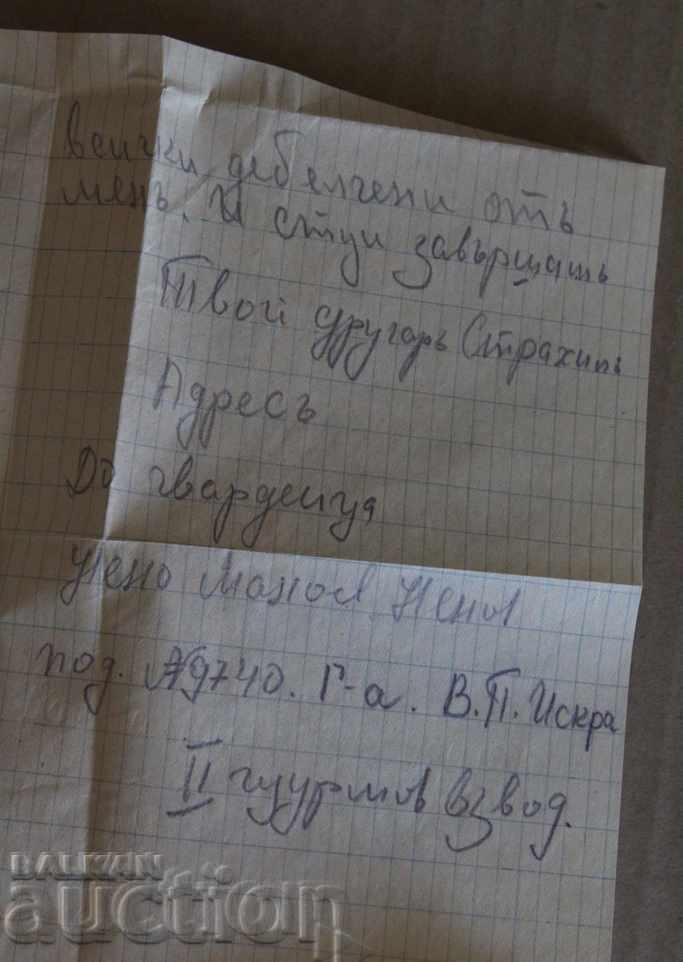 всички дебелчени отъ
менъ. И стуи завърщатъ
Твой другарь Страхилъ
Адресъ
До гвардеица
Нено Манол Ненов
под. №9740. Г-а. В.П. Искра
II щурмов взвод.
BALKAN
auction